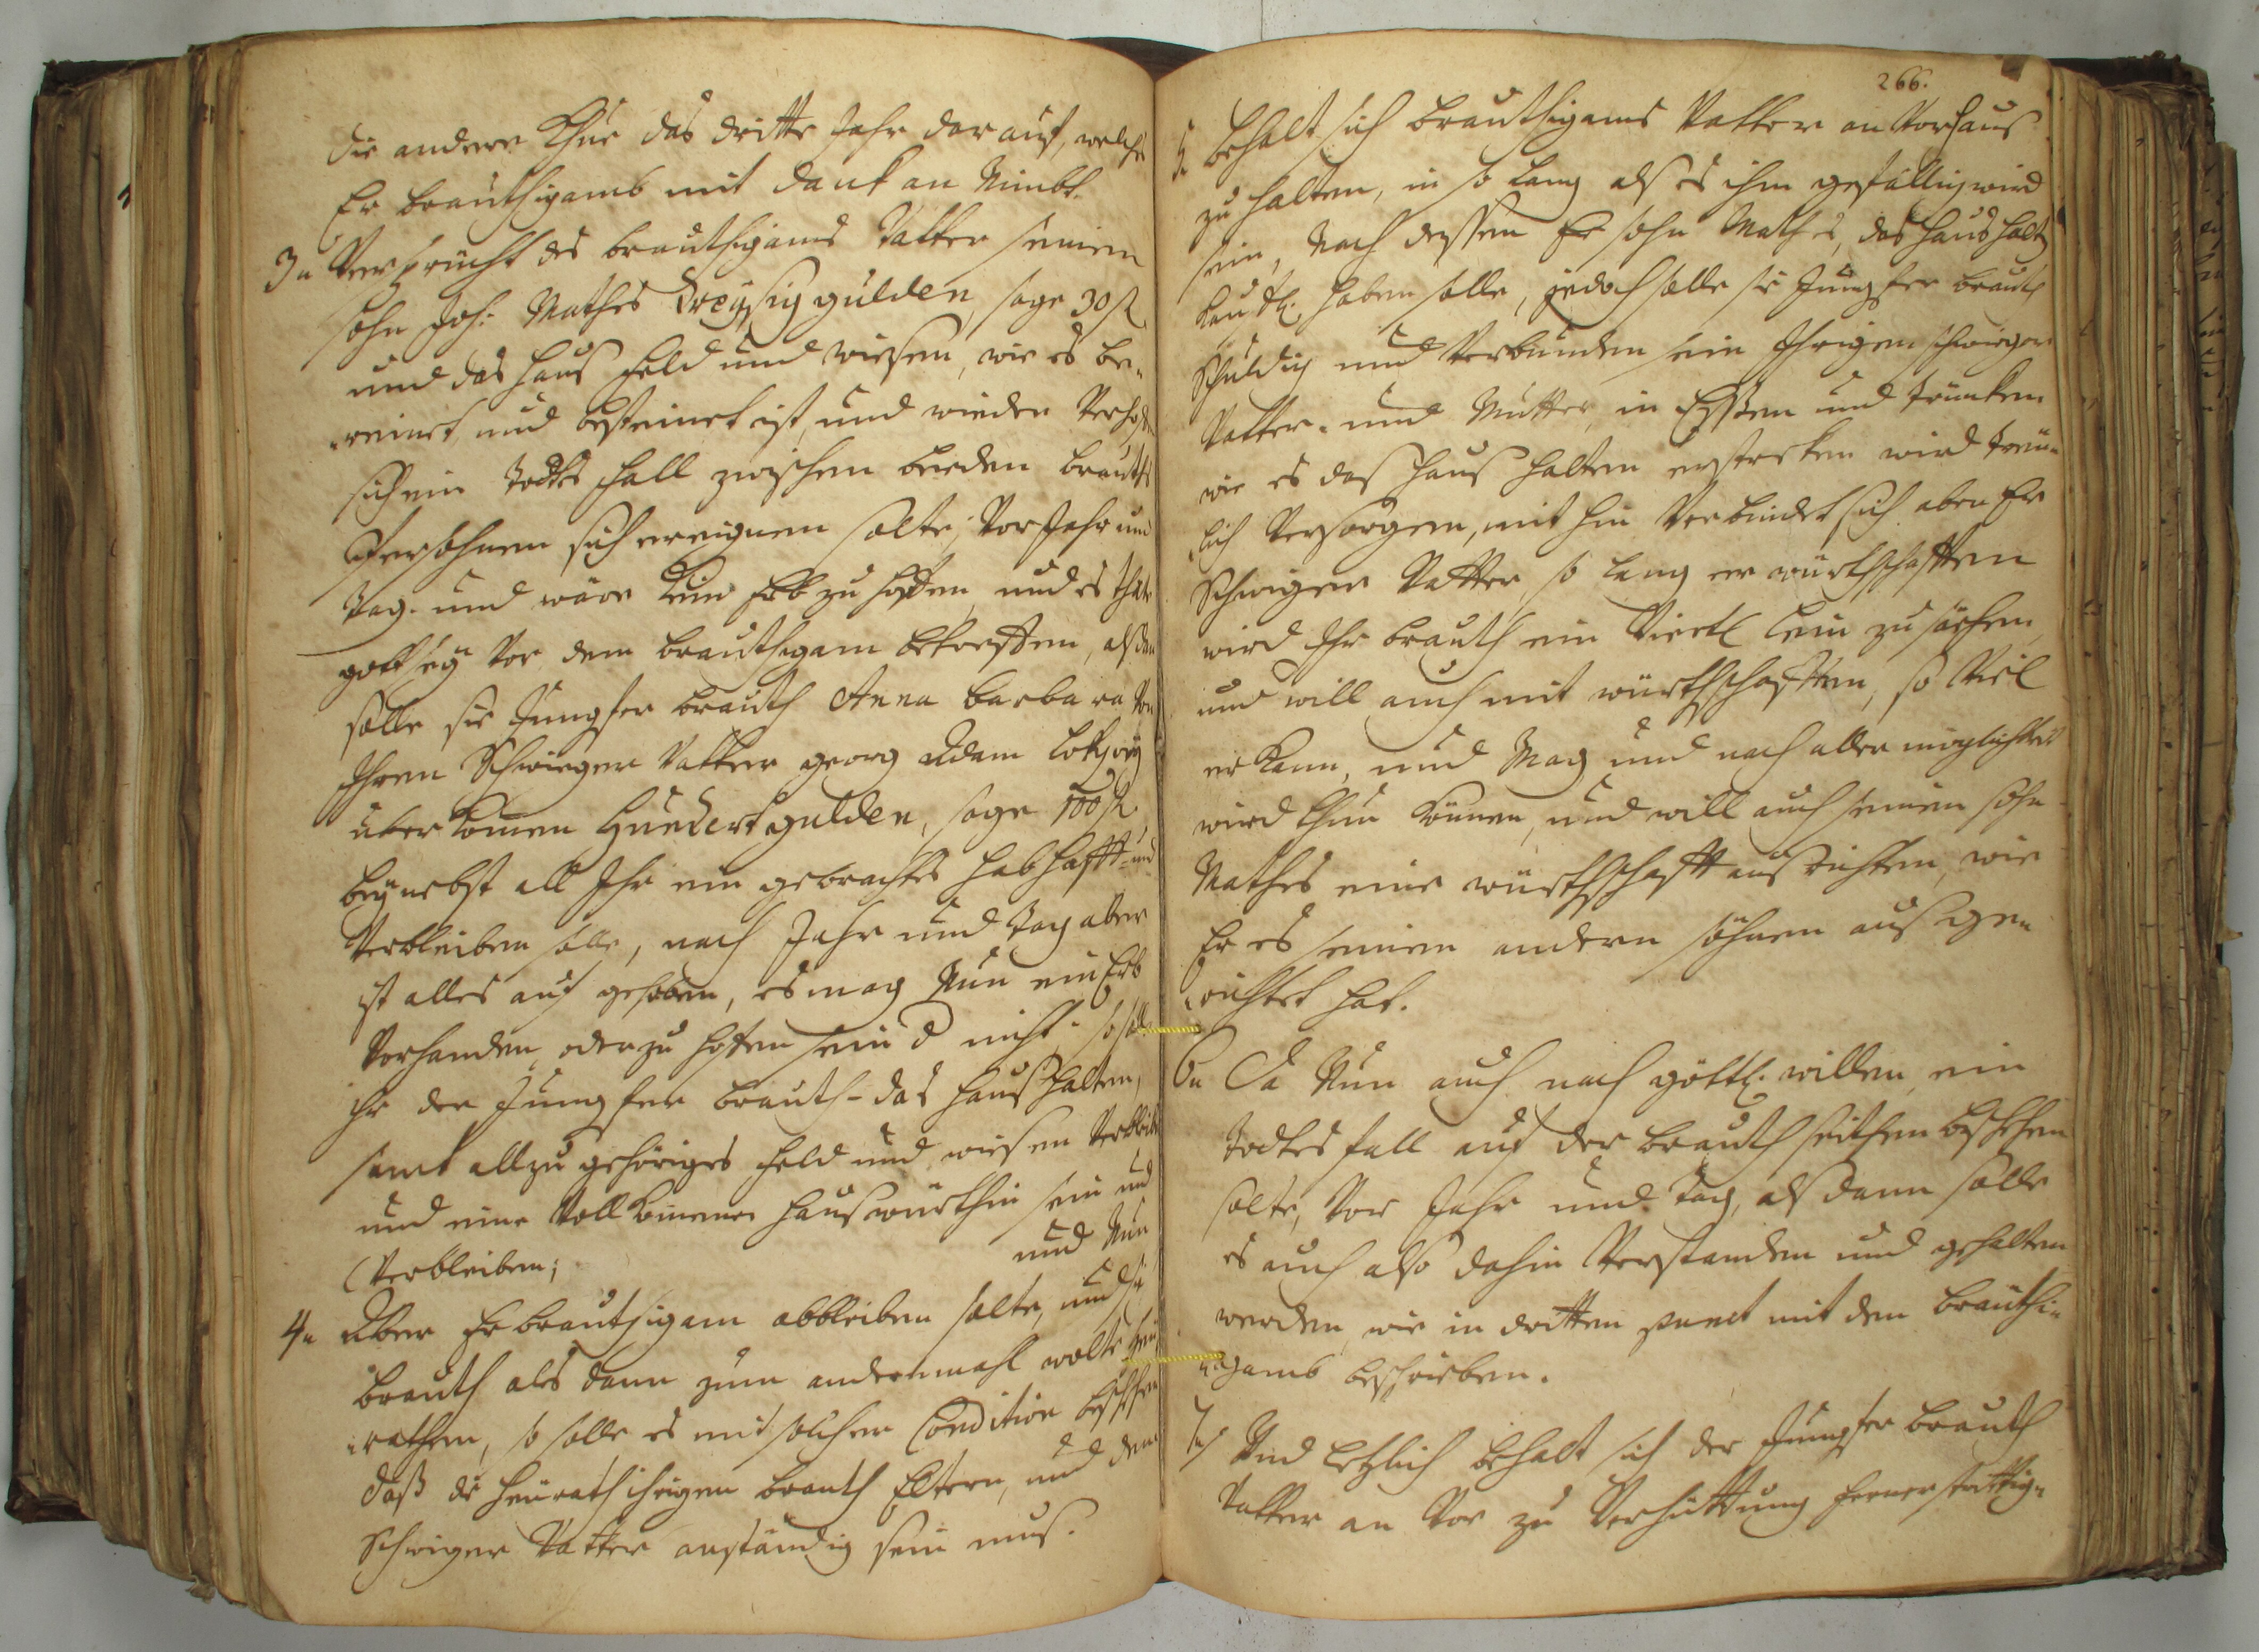 die andere Khue das dritte Jahr darauf, welche
Er brauthigamb mit dank an Nimbt.
3n Verspricht des brauthigambs Vatter seinem
sohn Joh: Mathes dreyssig gulden, sage 30 fl
und das haus feld und wiesen, wie es be-
-reinet, und besteinet ist, und wieder
sich ein Todtes fall zwischen beeden brauth
Persohnen sich ereignen solte, Vor Jahr und
Tag. und wäre kein Erb zu hoffen, und es thäte
gott sey Vor dem brauthigam betreffen, als dan
solle sie Jungfer brauth Anna Barbara Von
Ihren Schwieger Vatter georg Adam
überkomen Hundert gulden, sage 100 fl
beynebst all Ihr ein gebrachtes habhafft und
Verbleiben solle, nach Jahr und Tag aber
ist alles auf gehoben, es mag Nun ein Erb
Vorhanden, oder zu hoffen sein d nicht: so solle
ihr der Jungfer brauth das haus halten,
samt allzu gehöriges feld und wiesen Verbleiben
und eine Vollkomene hauswürthin sein und
Verbleiben; und Nun
4n Aber Er brauthigam ableiben solte, und sie
brauth als dann zum andernmahl wolte heu
-rathen, so solle es mit solcher Condition beschehen
daß die heurath ihrigen brauth Eltern, und dem
Schwiger Vatter anständig sein mus.
266.
5n behalt sich brauthigams Vatter an Vor haus
zu halten, in so lang als es ihm gefällig wird
sein, Nach dessen Er sohn Mathes, das haus halt
kaufl. haben solle, jedoch solle sie Jungfer brauth
schuldig und Verbunden sein Ihrigen schwieger
Vatter- und Mutter, in Essen und Trinken
wie es das haus halten erstrecken wird treu-
-lich Versorgen, mit hin Verbindet sich aber Er
Schwiger Vatter, so lang er würthschafften
wird Ihr brauth ein Viertl Lein zu säehen
und will auch mit würthschafften, so Viel
er kann, und Mag und nach aller möglichkeit
wird thun können, und will auch seinem sohn
Mathes eine würthschafft aus richten, wie
Er es seinen andern söhnen aus ge-
-richtet hat.
6n Da Nun auch nach göttl. willen, ein
Todtes fall auf der brauth seithen beschehen
solte, Vor Jahr und Tag, als dann solle
es auch also dahin Verstanden und gehalten
werden, wie in dritten punct mit dem brauthi-
-gamb beschrieben.
7n Und Letzlich behalt sich der Jungfer brauth
Vatter an Vor zu Verhüttung ferner strittig-